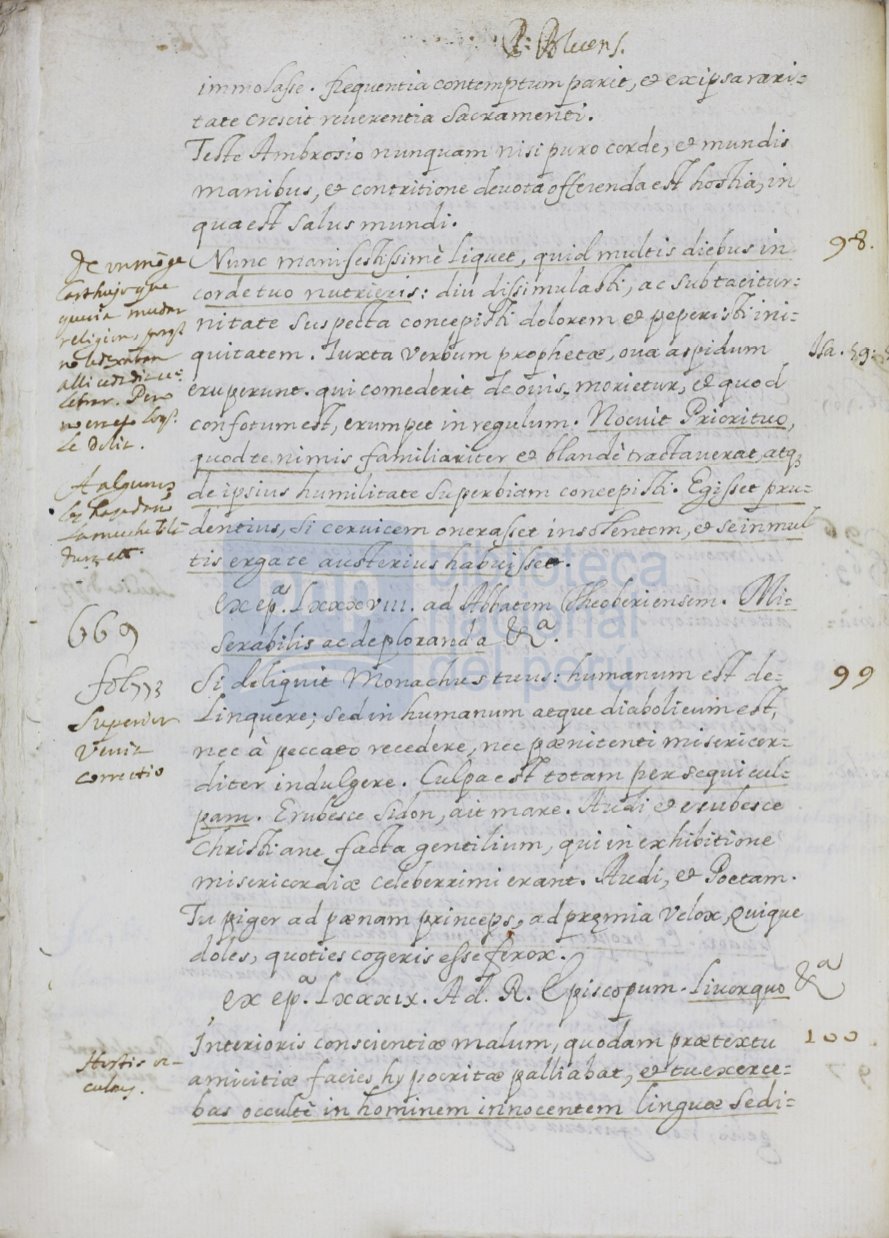 P. Blesens.
immolasse. frequentia contemptum parit, et ex ipsa rari=
tate crescit reverentia Sacramenti.
Teste Ambrosio nunquam nisi puro corde, et mundis
manibus, et contritione devota offerenda est hostia, in
qua est salus mundi.
Nunc manifestissimè liquet, quid multis diebus in 98.
corde tuo nutrieris: diu dissimulasti, ac sub tacitur=
nitate suspecta concepisti dolorem et peperisti ini=
quitatem. Iuxta verbum prophetæ, ova aspidum Isa. 59:
eruperunt. qui comederit de ovis, morietur, et quod
confotum est, erumpet in regulum. Nocuit Priori tuo,
quod te nimis familiariter et blandè tractaverat, atq3
de ipsius humilitate superbiam concepisti. Egisset pru=
dentius, si cervicem onerasset insolentem, et se in mul
tis erga te austerius habuisset.
De un mõge
Carthujo que
queria mudar
religion, porq̃
alli
Letrar. Pero
A algunos
ex epª. Lxxxviii. ad Abbatem Theoberiensem. Mi=
serabilis ac deploranda &ª.
669
Si deliquit Monachus tuus: humanum est de= 99
linquere; sed inhumanum aeque diabolicum est,
nec à peccato recedere, nec pænitenti misericor=
diter indulgere. Culpa est totam persequi cul=
pam. Erubesce Sidon, ait mare. Audi, et erubesce
Christiane facta gentilium, qui in exhibitione
misericordiæ celeberrimi erant. Audi, et Poetam.
Tu piger ad pænam princeps, ad præmia velox, Quique
doles, quoties cogeris esse ferox.
Superior
Correctio
ex epª. Lxxxix. Ad. R. Episcopum. Livor quo &ª
Interioris conscientiæ malum, quodam prætextu 100
amicitiæ facies hypocritæ palliabat, et tu exerce=
bas occultè in hominem innocentem linguæ sedi=
Hostis oc
cultus.
biblioteca
nacional
del perú